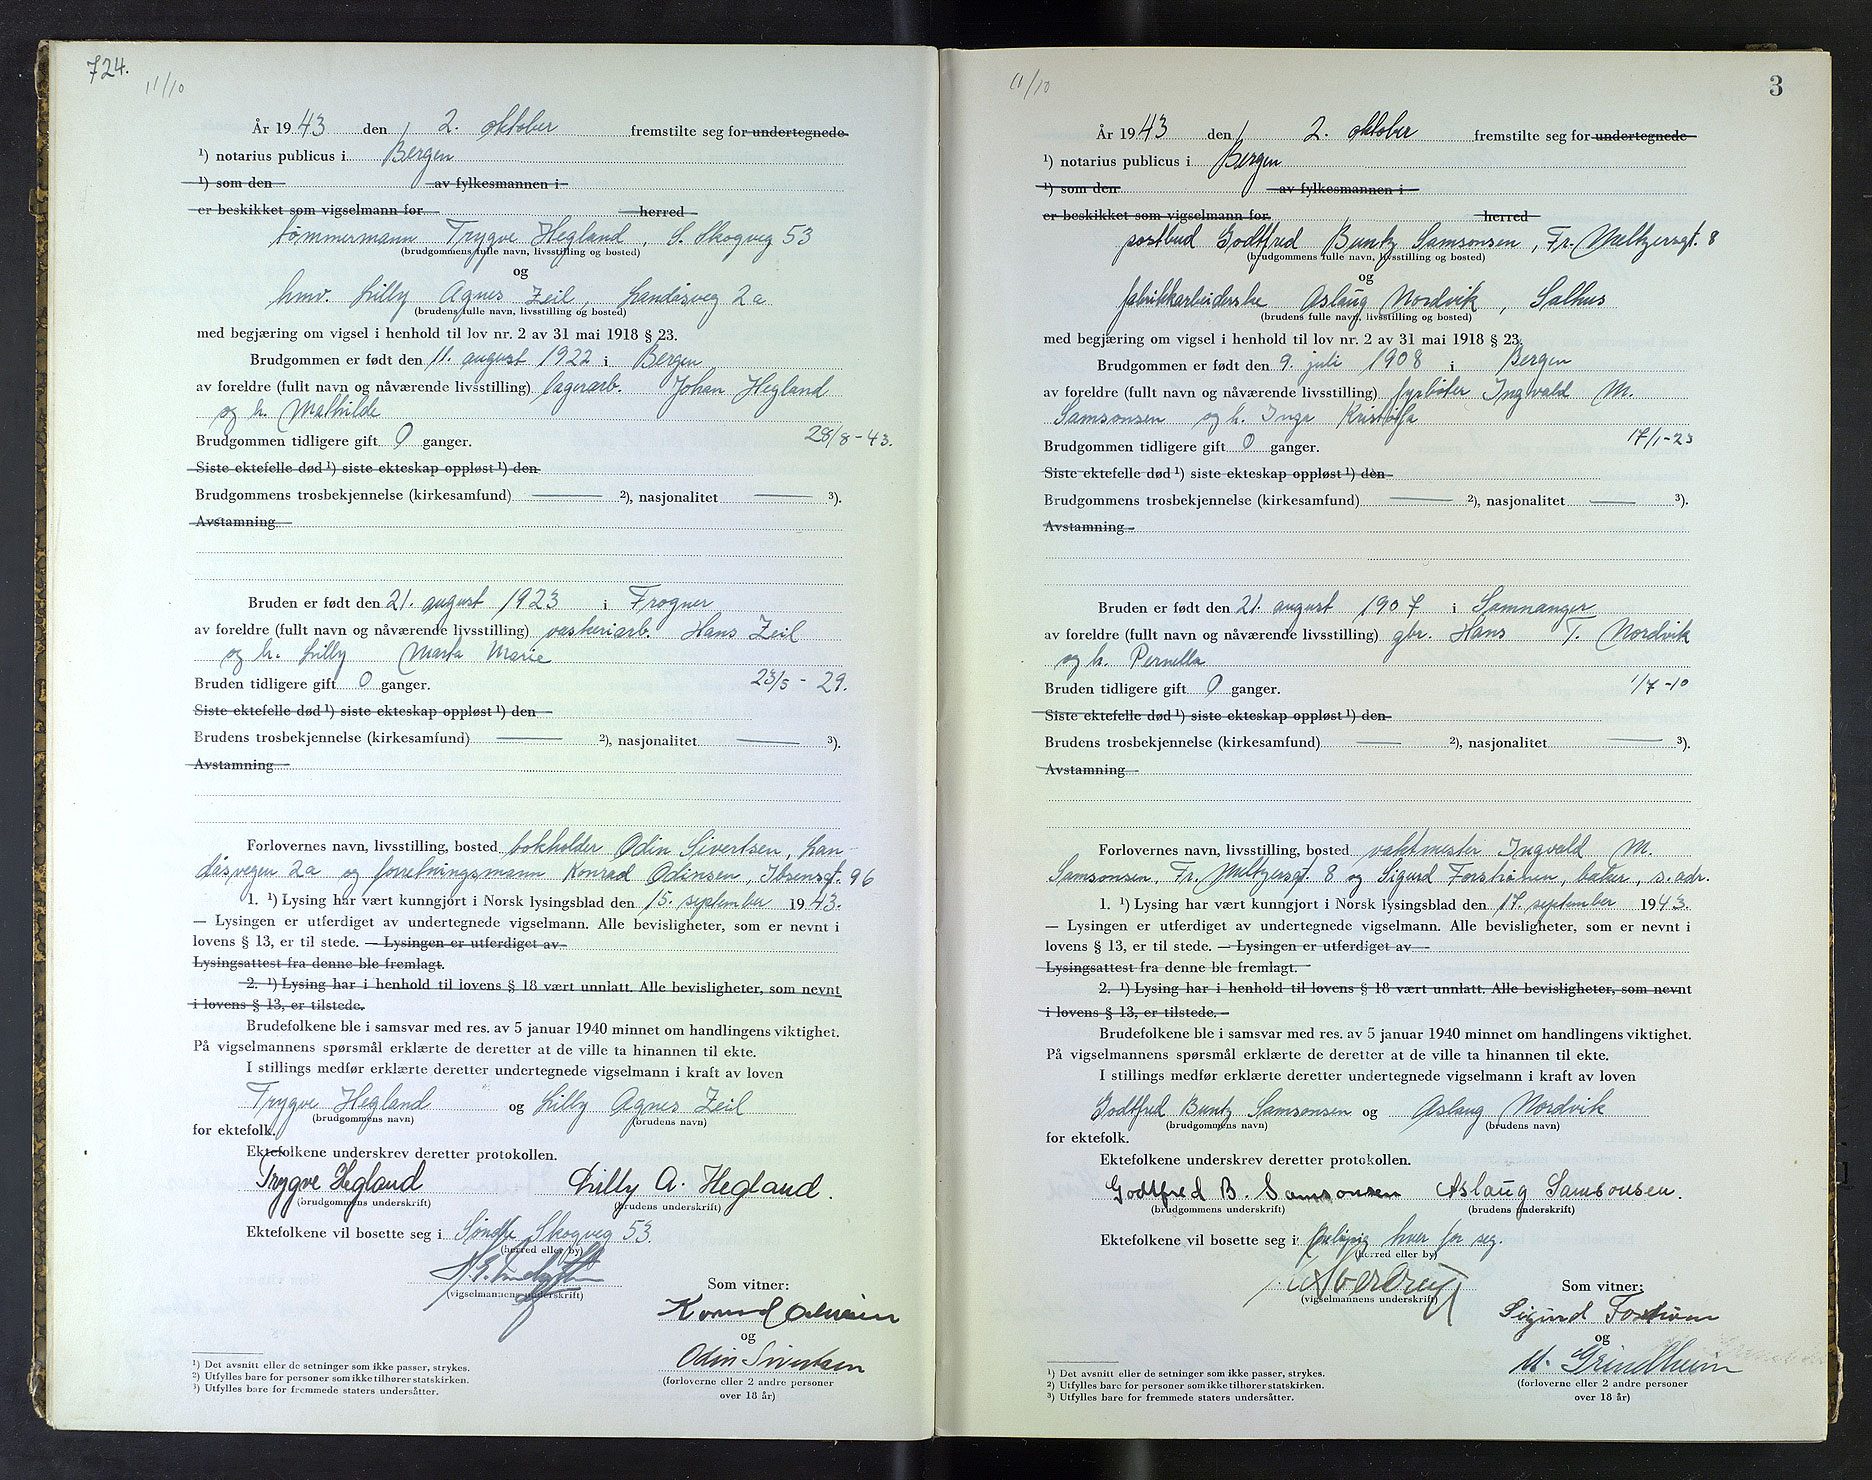 724.
11/10
År 1943 den 2. oktober fremstilte seg for undertegnede
¹) notarius publicus i Bergen
¹) som den av fylkesmannen i
er beskikket som vigselmann for herred
tømmermann Trygve Hegland, S. Skogveg 53
(brudgommens fulle navn, livsstilling og bosted)
og
hmv. Lilly Agnes Zeil, Landåsveg 2a
(brudens fulle navn, livsstilling og bosted)
med begjæring om vigsel i henhold til lov nr. 2 av 31 mai 1918 § 23.
Brudgommen er født den 11. august 1922 i Bergen
av foreldre (fullt navn og nåværende livsstilling) lagerarb. Johan Hegland
og h. Mathilde
Brudgommen tidligere gift 0 ganger. 28/8-43.
Siste ektefelle død ¹) siste ekteskap oppløst ¹) den
Brudgommens trosbekjennelse (kirkesamfund) — ²), nasjonalitet — ³).
Avstamning
Bruden er født den 21. august 1923 i Frogner
av foreldre (fullt navn og nåværende livsstilling) vaskeriarb. Hans Zeil
og h. Lilly Marta Marie
Bruden tidligere gift 0 ganger. 23/5 - 29.
Siste ektefelle død ¹) siste ekteskap oppløst ¹) den
Brudens trosbekjennelse (kirkesamfund) — ²), nasjonalitet — ³).
Avstamning
Forlovernes navn, livsstilling, bosted bokholder Odin Sivertsen, Lan-
dåsvegen 2a og forretningsmann Konrad Odinsen, Ibsensgt. 96
1. ¹) Lysing har vært kunngjort i Norsk lysingsblad den 15. september 1943.
— Lysingen er utferdiget av undertegnede vigselmann. Alle bevisligheter, som er nevnt i
lovens § 13, er til stede. — Lysingen er utferdiget av
Lysingsattest fra denne ble fremlagt.
2. ¹) Lysing har i henhold til lovens § 18 vært unnlatt. Alle bevisligheter, som nevnt
i lovens § 13, er tilstede.
Brudefolkene ble i samsvar med res. av 5 januar 1940 minnet om handlingens viktighet.
På vigselmannens spørsmål erklærte de deretter at de ville ta hinannen til ekte.
I stillings medfør erklærte deretter undertegnede vigselmann i kraft av loven
Trygve Hegland og Lilly Agnes Zeil
(brudgommens navn) (brudens navn)
for ektefolk.
Ektefolkene underskrev deretter protokollen.
Trygve Hegland Lilly A. Hegland.
(brudgommens underskrift) (brudens underskrift)
Ektefolkene vil bosette seg i Søndre Skogveg 53
(herred eller by)
(vigselmannens underskrift)
Som vitner:
Konrad Odinsen
og
Odin Sivertsen
(forloverne eller 2 andre personer
over 18 år)
¹) Det avsnitt eller de setninger som ikke passer, strykes.
²) Utfylles bare for personer som ikke tilhører statskirken.
³) Utfylles bare for fremmede staters undersåtter.
11/10
3
År 1943 den 2. oktober fremstilte seg for undertegnede
¹) notarius publicus i Bergen
¹) som den av fylkesmannen i
er beskikket som vigselmann for herred
postbud Godtfred Buntz Samsonsen, Fr. Meltzersgt. 8
(brudgommens fulle navn, livsstilling og bosted)
og
fabrikkarbeiderske Aslaug Nordvik, Salhus
(brudens fulle navn, livsstilling og bosted)
med begjæring om vigsel i henhold til lov nr. 2 av 31 mai 1918 § 23.
Brudgommen er født den 9. juli 1908 i Bergen
av foreldre (fullt navn og nåværende livsstilling) fyrbøter Ingvald M.
Samsonsen og h. Inga Kristofa
Brudgommen tidligere gift 0 ganger. 17/1-23
Siste ektefelle død ¹) siste ekteskap oppløst ¹) den
Brudgommens trosbekjennelse (kirkesamfund) — ²), nasjonalitet — ³).
Avstamning
Bruden er født den 21. august 1907 i Samnanger
av foreldre (fullt navn og nåværende livsstilling) gbr. Hans T. Nordvik
og h. Pernella
Bruden tidligere gift 0 ganger. 1/7-10
Siste ektefelle død ¹) siste ekteskap oppløst ¹) den
Brudens trosbekjennelse (kirkesamfund) — ²), nasjonalitet — ³).
Avstamning
Forlovernes navn, livsstilling, bosted vaktmester Ingvald M.
Samsonsen, Fr. Meltzersgt. 8 og Sigurd baker, s. adr.
1. ¹) Lysing har vært kunngjort i Norsk lysingsblad den 17. september 1943.
— Lysingen er utferdiget av undertegnede vigselmann. Alle bevisligheter, som er nevnt i
lovens § 13, er til stede. — Lysingen er utferdiget av
Lysingsattest fra denne ble fremlagt.
2. ¹) Lysing har i henhold til lovens § 18 vært unnlatt. Alle bevisligheter, som nevnt
i lovens § 13, er tilstede.
Brudefolkene ble i samsvar med res. av 5 januar 1940 minnet om handlingens viktighet.
På vigselmannens spørsmål erklærte de deretter at de ville ta hinannen til ekte.
I stillings medfør erklærte deretter undertegnede vigselmann i kraft av loven
Godtfred Buntz Samsonsen og Aslaug Nordvik
(brudgommens navn) (brudens navn)
for ektefolk.
Ektefolkene underskrev deretter protokollen.
Godtfred B. Samsonsen Aslaug Samsonsen.
(brudgommens underskrift) (brudens underskrift)
Ektefolkene vil bosette seg i foreløpig hver for seg.
(herred eller by)
(vigselmannens underskrift)
Som vitner:
Sigurd
og
M. Grindheim
(forloverne eller 2 andre personer
over 18 år)
¹) Det avsnitt eller de setninger som ikke passer, strykes.
²) Utfylles bare for personer som ikke tilhører statskirken.
³) Utfylles bare for fremmede staters undersåtter.